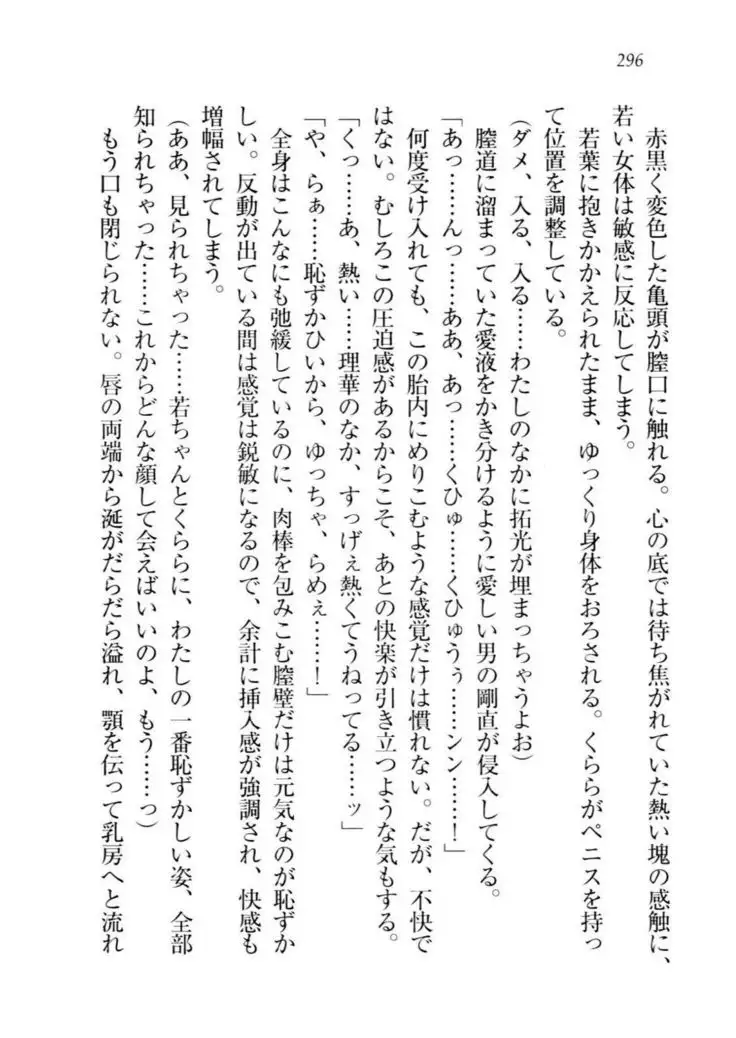 296
赤黒く変色した亀頭が膣口に触れる。心の底では待ち焦がれていた熱い塊の感触に、
若い女体は敏感に反応してしまう。
若葉に抱きかかえられたまま、ゆっくり身体をおろされる。くららがペニスを持っ
て位置を調整している。
(ダメ、入る、入る……わたしのなかに拓光が埋まっちゃうよお)
膣道に溜まっていた愛液をかき分けるように愛しい男の剛直が侵入してくる。
「あっ……んっ……ああ、あっ……くひゅ……くひゅうぅ……ンン……!」
何度受け入れても、この胎内にめりこむような感覚だけは慣れない。だが、不快で
はない。むしろこの圧迫感があるからこそ、あとの快楽が引き立つような気もする。
「くっ……あ、熱い……理華のなか、すっげぇ熱くてうねってる……ッ」
「や、らぁ……恥ずかひいから、ゆっちゃ、らめぇ……!」
全身はこんなにも弛緩しているのに、肉棒を包みこむ膣壁だけは元気なのが恥ずか
しい。反動が出ている間は感覚は鋭敏になるので、余計に挿入感が強調され、快感も
増幅されてしまう。
(ああ、見られちゃった……若ちゃんとくららに、わたしの一番恥ずかしい姿、全部
知られちゃった……これからどんな顔して会えばいいのよ、もう……っ)
もう口も閉じられない。唇の両端から涎がだらだら溢れ、顎を伝って乳房へと流れ